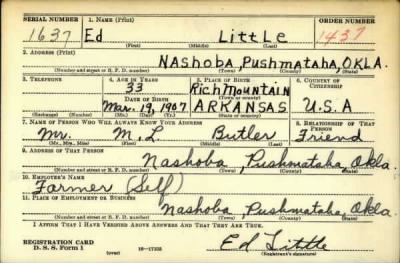 SERIAL NUMBER 1. NAME (Print) ORDER NUMBER
1637 Ed Little 1437
(First) (Middle) (Last)
2. ADDRESS (Print)
NAShoba, Pushmataha, OKLA.
(Number and street or R. F. D. number) (Town) (County) (State)
3. TELEPHONE 4. AGE IN YEARS 5. PLACE OF BIRTH 6. COUNTRY OF CITIZENSHIP
33 Rich Mountain
DATE OF BIRTH (Town or county)
Mar. 19, 1907 ARKANSAS U.S.A
(Exchange) (Number) (Mo.) (Day) (Yr.) (State or country)
7. NAME OF PERSON WHO WILL ALWAYS KNOW YOUR ADDRESS 8. RELATIONSHIP OF THAT PERSON
Mr. M. L. Butler Friend
(Mr., Mrs., Miss) (First) (Middle) (Last)
9. ADDRESS OF THAT PERSON
Nashoba, Pushmataha, Okla
(Number and street or R. F. D. number) (Town) (County) (State)
10. EMPLOYER'S NAME
Farmer (Self)
11. PLACE OF EMPLOYMENT OR BUSINESS
Nashoba, Pushmataha, Okla.
(Number and street or R. F. D. number) (Town) (County) (State)
I AFFIRM THAT I HAVE VERIFIED ABOVE ANSWERS AND THAT THEY ARE TRUE.
REGISTRATION CARD Ed Little
D. S. S. Form 1 (over) 16-17105 (Registrant's signature)